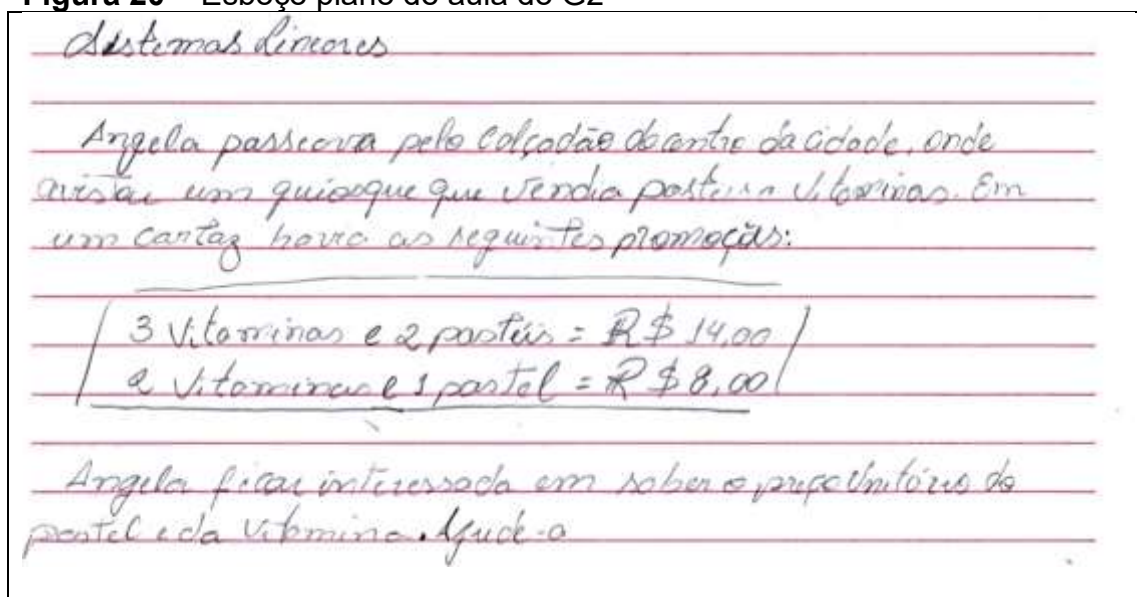 Figura 20 – Esboço plano de aula do G2
Sistemas Lineares
Angela passeava pelo calçadão do centro da cidade, onde
avistou um quiosque que vendia pasteis e Vitaminas. Em
um cartaz havia as seguintes promoções:
3 Vitaminas e 2 pastéis = R$ 14,00
2 Vitaminas e 1 pastel = R$ 8,00
Angela ficou interessada em saber o preço Unitário do
pastel e da Vitamina. Ajude-a